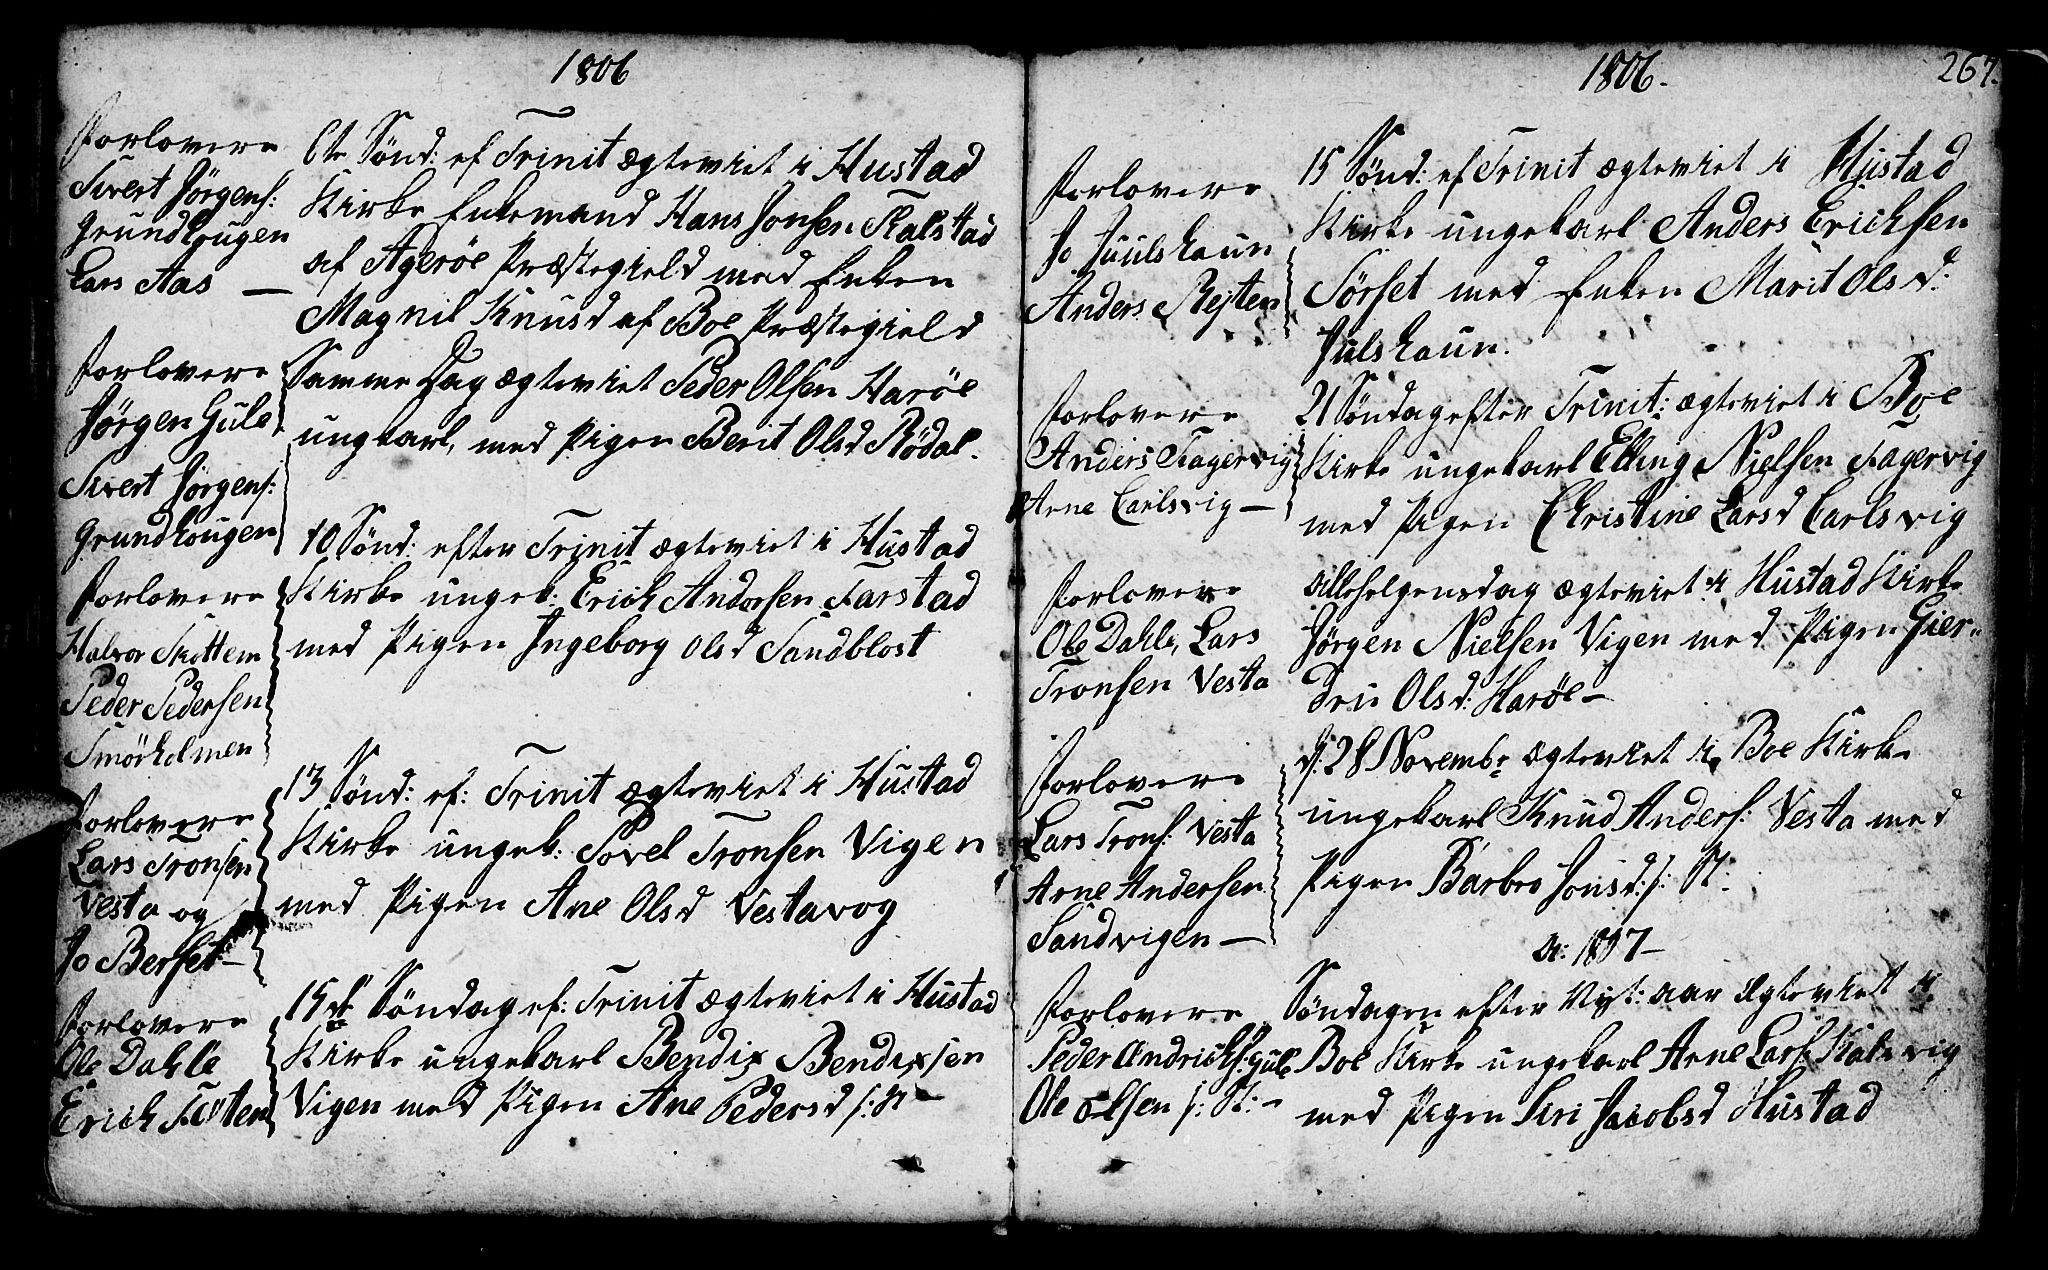 1806
Forlovere
Sivert Jörgens:
Grundhougen
Lars Aas —
6te Sönd: ef Trinit ægteviet i Hustad
Kirke Enkemand Hans Jonsen Skalstad
af Agerøe Præstegield med Enken
Magnil Knusd af Boe Præstegield
Forlovere
Jörgen Gule
Sivert Jörgens:
Grundhougen
Samme Dag ægteviet Peder Olsen Harøe
ungkarl, med Pigen Berit Olsd Rödal.
Forlovere
Halvor Skottem
Peder Pedersen
Smörholmen
10 Sönd: efter Trinit ægteviet i Hustad
Kirke ungek: Erich Andersen Farstad
med Pigen Ingeborg Olsd Sandblost
Forlovere
Lars Tronsen
Vesta og
Jo Berset —
13 Sönd: ef: Trinit ægteviet i Hustad
Kirke ungek: Povel Tronsen Vigen
med Pigen Ane Olsd Vestavog
Forlovere
Ole Dahle
Erich
15de Söndag ef: Trinit ægteviet i Hustad
Kirke ungekarl Bendix Bendixsen
Vigen med Pigen Ane Pedersd s: St —
1806.
267.
Forlovere
Jo Juulshaun
Anders Rejten
15 Sönd: ef Trinit ægteviet i Hustad
Kirke ungekarl Anders Erichsen
Sörset med Enken Marit Olsd:
Julshaun.
Forlovere
Anders Fagervig
Arne Carlsvig —
21 Söndag efter Trinit: ægteviet i Boe
Kirke ungekarl Elling Nielsen Fagervig
med Pigen Christine Larsd Carlsvig
Forlovere
Ole Dahle, Lars
Tronsen Vesta
Allehelgensdag ægteviet i Hustad Kirke
Jörgen Nielsen Vigen med Pigen Gier-
dru Olsd: Harøe —
Forlovere
Lars Trons: Vesta
Arne Andersen
Sandvigen —
d: 28 Novembr ægteviet i Boe Kirke
ungekarl Knud Anders: Vesta med
Pigen Barbro Jonsd: s: St:
A: 1807 —
Forlovere
Peder Andrichs: Gule
Ole Olsen s: St: —
Söndagen efter Nyt: aar ægteviet i
Boe Kirke ungekarl Arne Lars: Kalsvig
med Pigen Siri Jacobsd Hustad